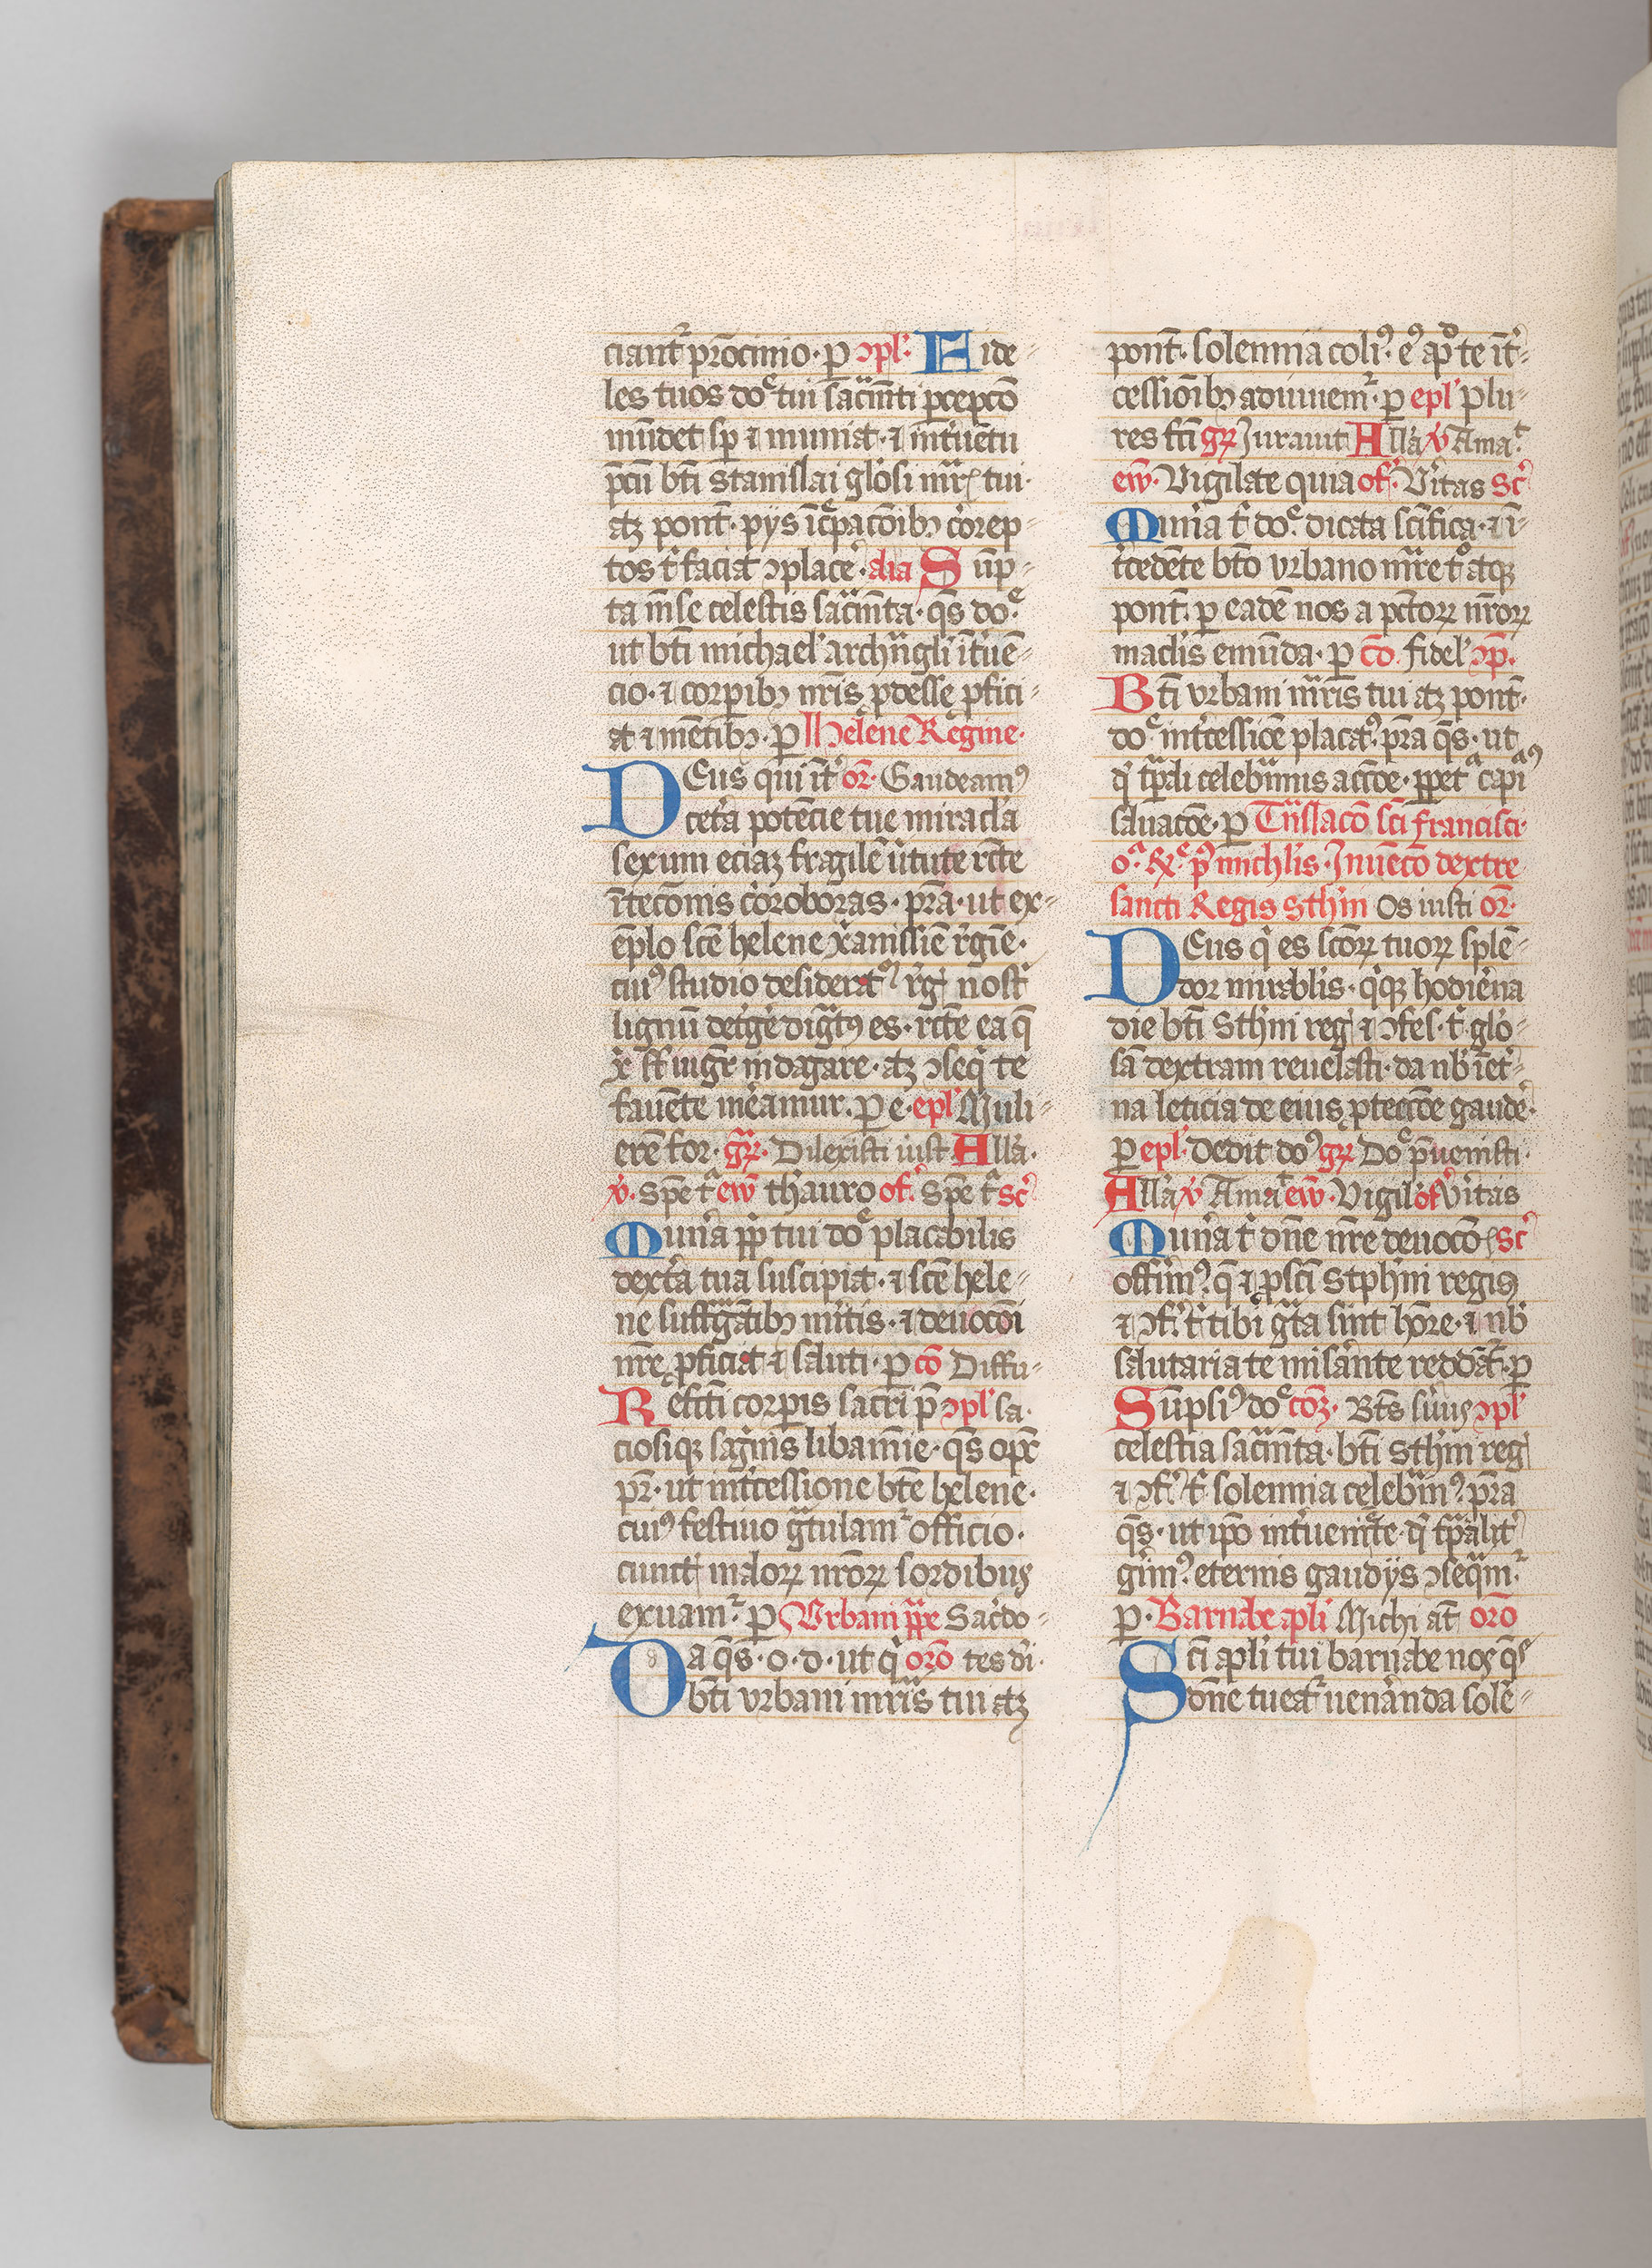 ciant᷑ pr̄ocinio · ꝑ ɔpl᷑ · Fide⸗
les tuos doᵉ tui sac̄m̄ti ꝑcepc̄o
mūdet sꝑ ⁊ muniat · ⁊ int᷑uētu
p̄cū bt̄i stanislai gl̓osi mr̄ꝭ tui ·
atꝫ pont̄ · pys īcꝑac̄oibꝫ c̓orep⸗
tos t᷑ faciat ɔplac̓e · alia Sūp⸗
ta m̄se celestis sac̄m̄ta · q̄s doᵉ
ut bt̄i michael̓ arch̄ngl̓i īt̓uē⸗
cio · ⁊ corꝑibꝫ nr̄is ꝓdesse ꝓfici⸗
at ⁊ mētibꝫ · ꝑ Helene Regine ·
DEus qui īt᷑ or̄ · Gaudeamꝰ
cet̓a potēcie tue miracl̓a
sexum eciaꝫ fragilē u̓tute rc̄te
ītēc̄onis c̓oroboras · pr̄a · ut ex⸗
ēplo sc̄e helene xp̓anissīe r̓gīe ·
cuiꝰ studio desiderat᷑ r̓gꝭ nost᷑
lignū det̓ge dig̓tꝰ es · rc̄te ea q̄
x̓ st̄ iug̓r̄ indagare · atꝫ ɔseq̓ te
fauēte me̓amur · ꝑ e · epl̓ Muli⸗
erē for · gr̄ · Dilexisti iust All̓a ·
v̓ · Spē t᷑ ew̄ thauro of᷑ · Spē t᷑ sc̓
Mun̓a pp̄ tui doᵉ placabilis
dext̓a tua suscipiat · ⁊ sc̄e hele⸗
ne suffrag̓atibꝫ m̓itis · ⁊ deuoc̄oi
nr̄e ꝓficiat ⁊ saluti · ꝑ cō Diffu⸗
Refct̄i corꝑis sacr̄i p̄ ɔpl̓ sa ·
ciosiqꝫ sag̓nis libam̄ie · q̄s op̄r
pr̄ · ut int̓cessione bt̄e helene ·
cuiꝰ festiuo g̓tulam᷑ officio ·
cunctꝭ maloꝝ nr̄oꝝ sordibus
exuam᷑ · ꝑ Urbani pp̄e Sac̓do⸗
Da q̄s · o · d · ut q̓ or̄o tes di ·
bt̄i vrbani mr̄is tui atꝫ
pont̄ · solemnia coli᷒ · eꝰ apᵈ te īt̓⸗
cessioibꝫ adiuuem᷑ · ꝑ epl̓ Plu⸗
res fc̄i gr̄ Jurauit All̓a v̓ Ama᷑
ew̄ · Vigilate quia of᷑ · V̓itas Sc̓
Mun̓a t᷑ doᵉ dicata sc̄ifica · ⁊ ī⸗
t̓cedēte bt̄o vrbano mr̄e t᷑ atqꝫ
pont̄ · ꝑ eadē nos a pc̄toꝝ nr̄oꝝ
macl̓is emūda · ꝑ cō · fidel̓ ɔp̄ ·
Bt̄i vrbani mr̄is tui atꝫ pont̄ ·
doᵉ int̓cessiōe placat᷒ · pr̄a q̄s · ut
q̓ tp̄ali celeb̓mus acc̄oe · ꝑpet᷑ capi᷒
saluac̄oe · ꝑ Tn̄slac̄o sc̄i francisci ·
oᵃ Rᵉ p᷒ michl̓is · Inuēc̄o dextre
sancti Regis Sth̓ni Os iusti or̄ ·
DEus q̓ es sc̄oꝝ tuoꝝ splē⸗
dor mirabl̓is · q̓qꝫ hodi̓ena
die bt̄i Sth̓ni regꝭ ⁊ ɔfes · t᷑ gl̓o⸗
sā dextram reuelasti · da nb̓ īet̓⸗
na leticia de eius ꝓtecc̄oe gaude̓ ·
ꝑ epl̓ · Dedit doꝰ gr̄ Doᵉ p̄uenisti ·
All̓a v̓ Ama᷑ ew̄ · Vigil̓ of᷑ V̓itas
Mun̓a t᷑ dn̄e nr̄e deuoc̄oꝭ Sc̓
offim᷒ · q̄ ⁊ ꝓ sc̄i Stph̓ni regis
⁊ ɔf᷑ · t᷑ tibi g̓ta sint hōre · ⁊ nb̓
salutaria te mis̓ante reddāt᷑ · ꝑ
Sūpsi᷒ doᵉ cōꝫ · Bt̄s su̓us ɔpl̓
celestia sac̄m̄ta · bt̄i Sth̓ni regꝭ
⁊ ɔf᷑ · t᷑ solemnia celeb̓m᷒ · pr̄a
q̄s · ut ip̄o int̓ueniēte · q̓ tp̄alit̓
g̓im᷒ · eternis gaudys ɔseq̓m᷑
ꝑ · Barnabe apl̓i Michi at̄ or̄o
Sc̄i apl̓i tui barnabe nos q̄s
dn̄e tueat᷑ uen̓anda sole⸗